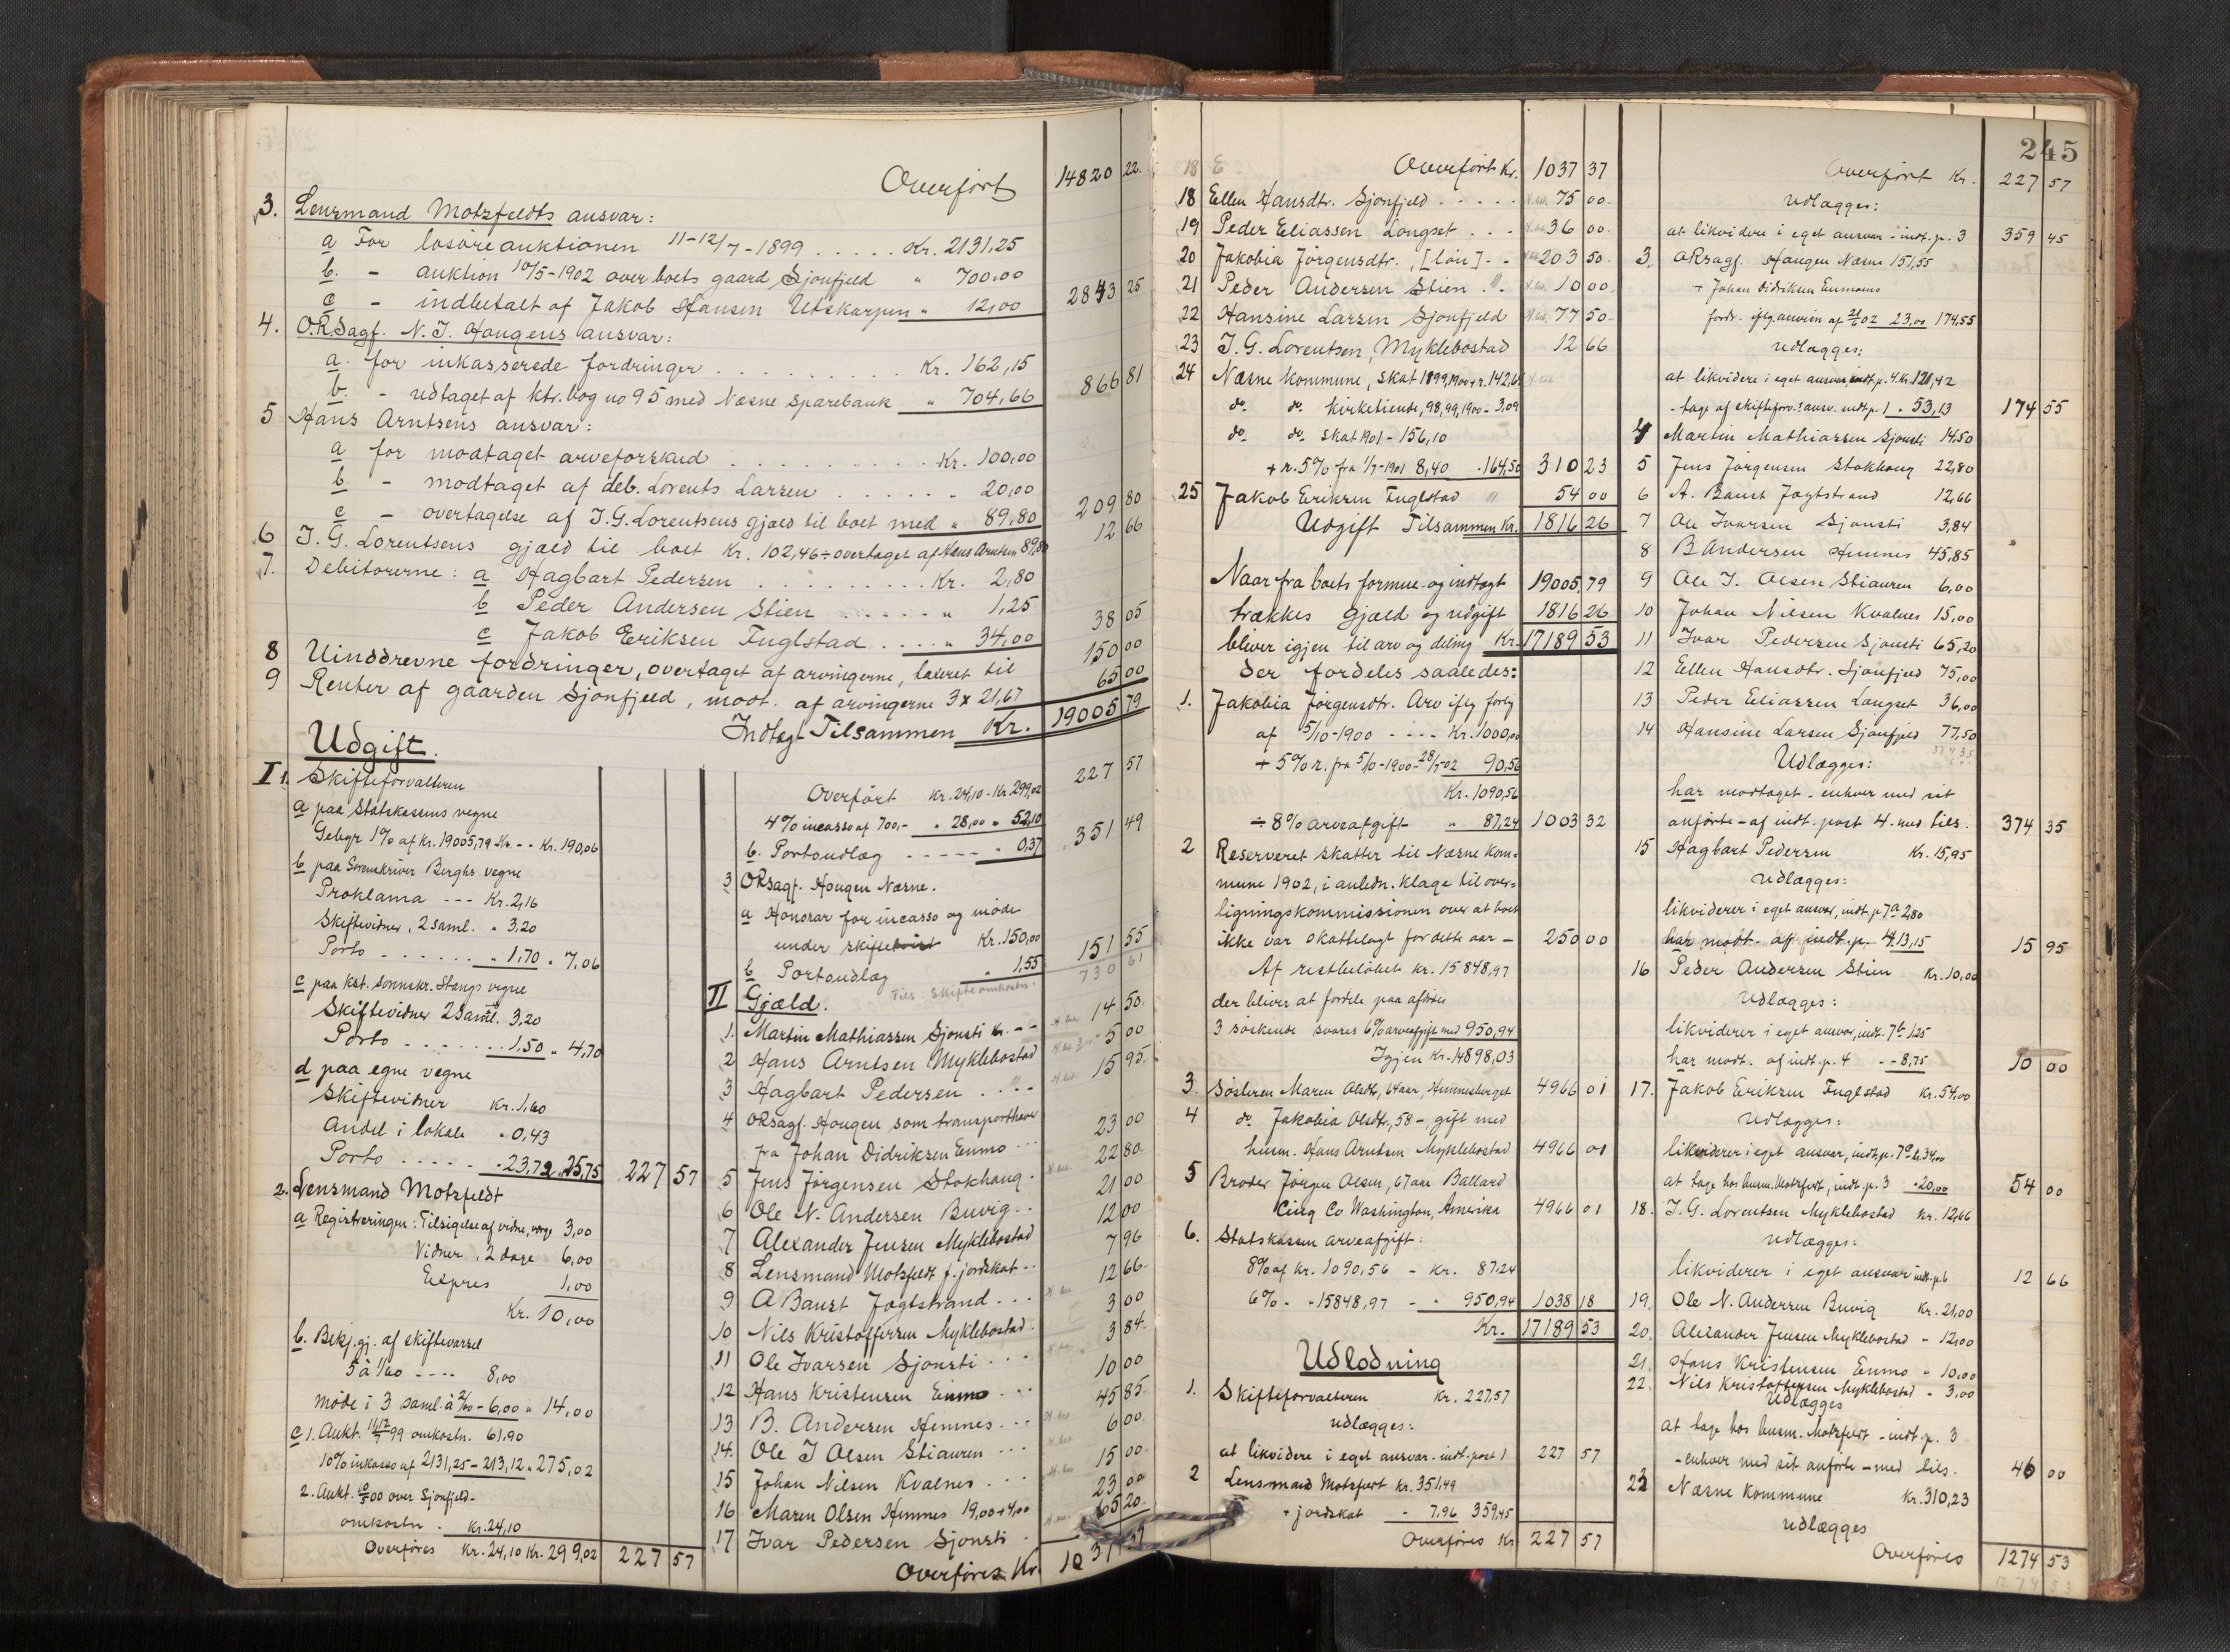 Overført 14820 22.
3. Lensmand Motzfeldts ansvar:
a For løsøreauktionen 11-12/7-1899 . . . . . Kr. 2131,25
b. - auktion 10/5-1902 over boets gaard Sjonfjeld " 700,00
c - indbetalt af Jakob Hansen Utskarpen " 12,00 2843 25
4. O.R.Sagf. N. J. Hougens ansvar:
a. for inkasserede fordringer . . . . . . . . . Kr. 162,15
b. - udtaget af ktr. bog no 95 med Næsne Sparebank " 704,66 866 81
5 Hans Arntsens ansvar:
a for modtaget arveforskud . . . . . . . . . . Kr. 100,00
b. - modtaget af deb. Lorents Larsen . . . . . . - 20,00
c - overtagelse af J. G. Lorentsens gjæld til boet med " 89,80 209 80
6 J. G. Lorentsens gjæld til boet Kr. 102,46 ÷ overtaget af Hans Arntsen 89,80 12 66
7. Debitorerne: a Hagbart Pedersen . . . . . . . . . Kr. 2,80
b Peder Andersen Stien . . . . . " 1,25
c Jakob Eriksen Fuglstad . . . . " 34,00 38 05
8 Uinddrevne fordringer, overtaget af arvingerne, taxeret til 150 00
9 Renter af gaarden Sjonfjeld, modt. af arvingerne 3 x 21,67 65 00
Indtægt Tilsammen Kr. 19005 79
Udgift.
I 1. Skifteforvalteren
a paa Statskassens vegne
Gebyr 1% af kr. 19005,79 Kr. - - Kr. 190,06
b paa Sorenskriver Berghs vegne
Proklama --- Kr. 2,16
Skiftevidner, 2 saml. " 3,20
Porto . . . . . . " 1,70 " 7,06
c paa kst. sorenskr. Stangs vegne
Skiftevidner 2 saml. 3,20
Porto . . . . . . . 1,50 " 4,70
d paa egne vegne
Skiftevidner Kr. 1,60
Andel i lokale " 0,43
Porto . . . . . " 23,72 " 25,75 227 57
2. Lensmand Motzfeldt
a Registreringen: Tilsigelse af vidne, 3,00
Vidner, 2 dage 6,00
Expres 1,00
Kr. 10,00
b. Bekj.gj. af skiftevarsel
5 à 1/60 ---- 8,00
møde i 3 saml. à 2/00 - 6,00 " 14,00
c 1. Aukt. 11-12/7 99 omkostn. 61,90
10% inkasso af 2131,25 - 213,12 " 275,02
2. Aukt. 10/5 00 over Sjonfjeld -
omkostn. Kr. 24,10
Overføres Kr. 24,10 Kr. 299,02 227 57
227 57
Overført Kr. 24,10 - Kr. 299,02
4% incasso af 700,- " 28,00 " 52,10
b. Portoudlæg - - - - - " 0,37 351 49
3 ORSagf. Hougen Næsne.
a Honorar for incasso og møde
under skiftet Kr. 150,00
b Portoudlæg " 1,55 151 55
Tils. Skifteomkostn. 730 61
II Gjæld.
1. Martin Mathiassen Sjonsti Kr. - - 14 50.
2 Hans Arntsen Myklebostad 5 00
3 Hagbart Pedersen . " - - 15 95.
4 ORSagf. Hougen som transporthaver
fra Johan Didriksen Enmo - - - 23 00
5 Jens Jørgensen Stokhaug - 22 80.
6 Ole N. Andersen Buvig - - 21 00
7 Alexander Jensen Myklebostad 12 00
8 Lensmand Motzfeldt f. jordskat - - 7 96
9 A Banst Jagtstrand . . . 12 66
10 Nils Kristoffersen Myklebostad. 3 00
11 Ole Ivarsen Sjonsti . . . 3 84.
12 Hans Kristensen Enmo . . . 10 00
13 B. Andersen Hemnes . . . 45 85.
14. Ole J Olsen Stiauren . . . 6 00.
15 Johan Nilsen Kvalnes . . . 15 00.
16 Maren Olsen Hemnes 19,00 + 4,00 23 00
17 Ivar Pedersen Sjonsti . 65 20.
Overføres Kr. 1037 37
18 E Overført Kr. 1037 37
18 Ellen Hansdtr. Sjonfjeld . . . . . 75 00
19 Peder Eliassen Longset . . . 36 00
20 Jakobia Jørgensdtr., [løn] - - 203 50
21 Peder Andersen Stien . " . 10 00
22 Hansine Larsen Sjonfjeld 77 50
23 J. G. Lorentsen, Myklebostad 12 66
24 Næsne kommune, skat 1899,1900 + r. 142,64
do. do. kirketiende, 98,99,1900 - 3,09
do. do. skat 1901 - 156,10
+ r. 5% fra 1/7-1901 8,40 . 164,50 310 23
25 Jakob Eriksen Fuglstad " 54 00
Udgift Tilsammen Kr. 1816 26
Naar fra boets formue og indtægt 19005,79
trækkes gjæld og udgift 1816 26
bliver igjen til arv og deling Kr. 17189 53
der fordeles saaledes:
1. Jakobia Jørgensdtr. Arv iflg forlig
af 5/10-1900 - - - - Kr. 1000,00
+ 5% r. fra 5/10-1900 - 28/7 02 90,56
Kr. 1090,56
÷ 8% arveafgift " 87,24 1003 32
2 Reserveret skatter til Næsne kom=
mune 1902, i anledn. klage til over=
ligningskommissionen over at boet
ikke var skattelagt for dette aar - 250 00
Af restbeløbet kr. 15848,97
der bliver at fordele paa afdødes
3 søskende svares 6% arveafgift med 950,94
Igjen Kr. 14898,03
3. Søsteren Maren Olsdtr, 64 aar, Hemnesberget 4966 01
4 do. Jakobia Olsdtr., 58 -, gift med
husm. Hans Arntsen Myklebostad 4966 01
5 Broder Jørgen Olsen, 67 aar Ballard
Cing Co Washington, Amerika 4966 01
6. Statskassen arveafgift:
8% af kr. 1090,56 - Kr. 87,24
6% - " 15848,97 - " 950,94 1038 18
Kr. 17189 53
Udlodning
1. Skifteforvalteren Kr. 227,57
udlægges:
at likvidere i eget ansvar - indt. post 1 227 57
2 Lensmand Motzfeldt kr. 351,49
+ jordskat - 7,96 359,45
Overføres Kr 227 57
245
Overført Kr. 227 57
udlægges:
at likvidere i eget ansvar - indt. p. 3 359 45
3. ORsagf. Hougen Næsne 151,55
+ Johan Didriksen Enmoens
fordr. iflg. anvisn. af 21/6 02 23,00 174,55
udlægges:
at likvidere i eget ansvar, indt. p. 4. Kr. 121,42
- tage af skifteforv.s ansv. indt. p. 1 " 53,13 174 55
4 Martin Mathiassen Sjonsti 14,50
5 Jens Jørgensen Stokhaug 22,80
6 A. Banst Jagtstrand 12,66
7 Ole Ivarsen Sjonsti 3,84
8 B Andersen Hemnes 45,85
9 Ole J. Olsen Stiauren 6,00
10 Johan Nilsen Kvalnes 15,00
11 Ivar Pedersen Sjonsti 65,20
12 Ellen Hansdtr. Sjonfjeld 75,00
13 Peder Eliassen Longset 36,00
14 Hansine Larsen Sjonfjeld 77,50
374 35
Udlægges:
har modtaget - enhver med sit
anførte - af indt. post 4. med tils. 374 35
15 Hagbart Pedersen Kr. 15,95
udlægges:
likviderer i eget ansvar, indt. p 7a 2,80
har modt. af indt. p. 4. 13,15 15 95
16 Peder Andersen Stien Kr. 10,00
Udlægges:
likviderer i eget ansvar, indt. 7b 1,25
har modt. af indt. p. 4 - - 8,75 10 00
17. Jakob Eriksen Fuglstad Kr. 54,00
udlægges:
likviderer i eget ansvar, indt. p. 7c kr. 34,00
at tage hos lensm. Motzfeldt, indt. p. 3 " 20,00 54 00
18. J. G. Lorentsen Myklebostad Kr. 12,66
udlægges:
likviderer i eget ansvar indt. p. 6 12 66
19. Ole N. Andersen Buvig Kr. 21,00
20. Alexander Jensen Myklebostad - 12,00
21. Hans Kristensen Enmo " 10,00
22. Nils Kristoffersen Myklebostad - 3,00
Udlægges
at tage hos lensm. Motzfeldt - indt. p. 3
- enhver med sit anførte - med tils. 46 00
23 Næsne kommune Kr. 310,23
udlægges
Overføres 1274 53
1274 53